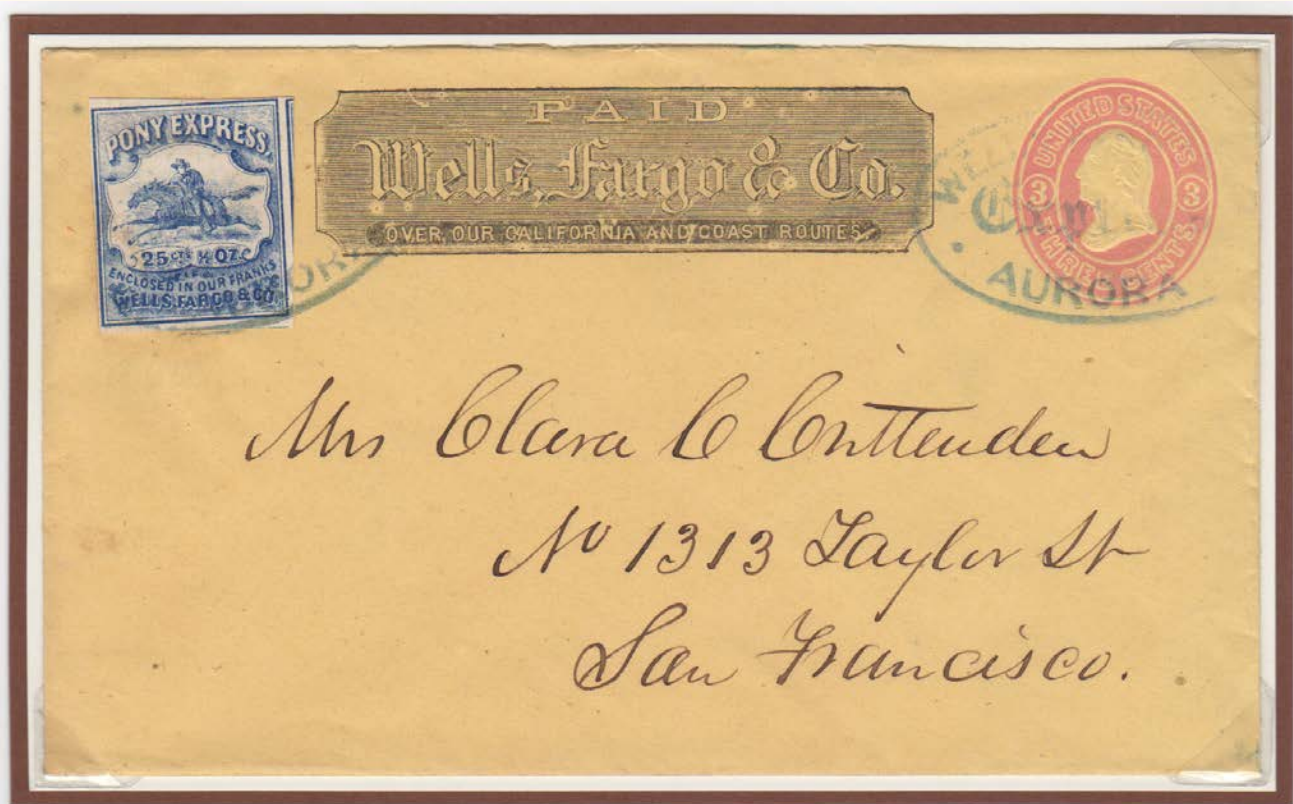 PONY EXPRESS.
25 CTS ½ OZ.
ENCLOSED IN OUR FRANKS
WELLS, FARGO & CO.
PAID
Wells, Fargo & Co.
OVER OUR CALIFORNIA AND COAST ROUTES.
UNITED STATES
3 3
THREE CENTS.
AURORA
Mrs Clara C Crittenden
No 1313 Taylor St
San Francisco.